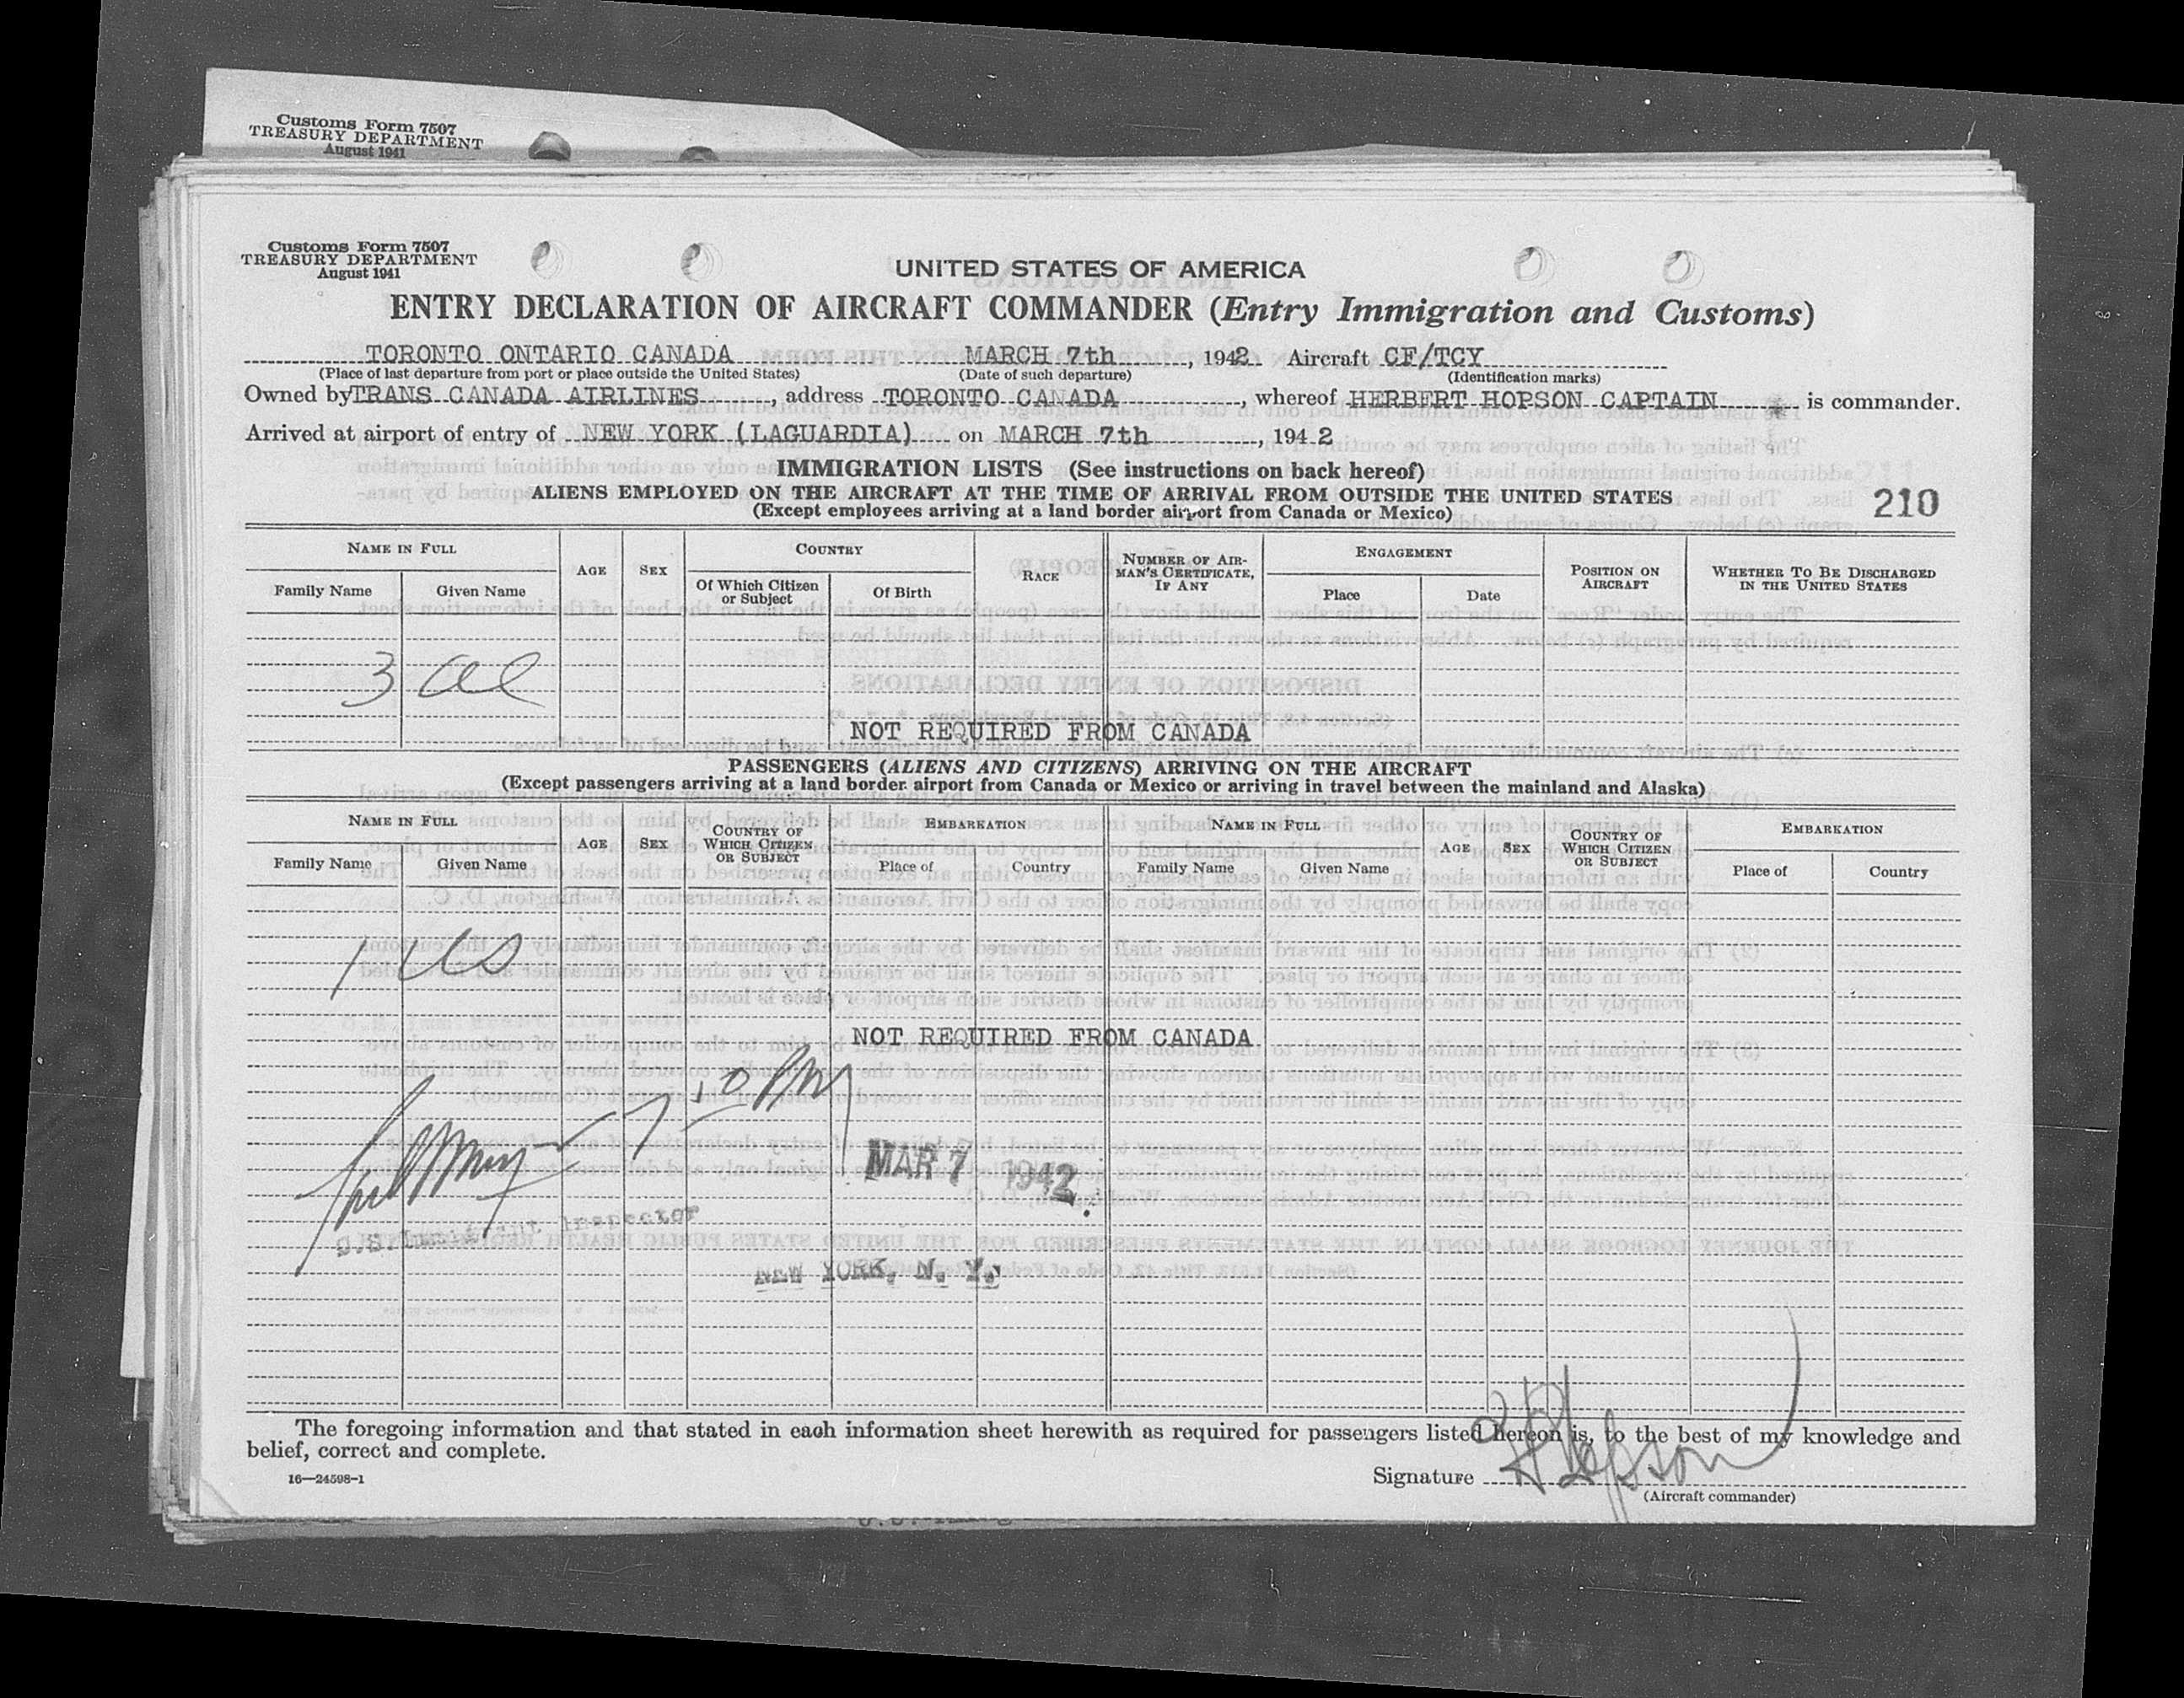 Customs Form 7507
TREASURY DEPARTMENT
August 1941
Customs Form 7507
TREASURY DEPARTMENT
August 1941
UNITED STATES OF AMERICA
ENTRY DECLARATION OF AIRCRAFT COMMANDER (Entry Immigration and Customs)
TORONTO ONTARIO CANADA MARCH 7th, 1942 Aircraft CF/TCY
(Place of last departure from port or place outside the United States) (Date of such departure) (Identification marks)
Owned by TRANS CANADA AIRLINES, address TORONTO CANADA, whereof HERBERT HOPSON CAPTAIN is commander.
Arrived at airport of entry of NEW YORK (LAGUARDIA) on MARCH 7th, 194 2
IMMIGRATION LISTS (See instructions on back hereof)
ALIENS EMPLOYED ON THE AIRCRAFT AT THE TIME OF ARRIVAL FROM OUTSIDE THE UNITED STATES
(Except employees arriving at a land border airport from Canada or Mexico)
210
NAME IN FULL AGE SEX COUNTRY RACE NUMBER OF AIRMAN'S CERTIFICATE, IF ANY ENGAGEMENT POSITION ON AIRCRAFT WHETHER TO BE DISCHARGED IN THE UNITED STATES
Family Name Given Name Of Which Citizen or Subject Of Birth Place Date
3
NOT REQUIRED FROM CANADA
PASSENGERS (ALIENS AND CITIZENS) ARRIVING ON THE AIRCRAFT
(Except passengers arriving at a land border airport from Canada or Mexico or arriving in travel between the mainland and Alaska)
NAME IN FULL AGE SEX COUNTRY OF WHICH CITIZEN OR SUBJECT EMBARKATION NAME IN FULL AGE SEX COUNTRY OF WHICH CITIZEN OR SUBJECT EMBARKATION
Family Name Given Name Place of Country Family Name Given Name Place of Country
1 US
NOT REQUIRED FROM CANADA
MAR 7 1942
U.S. Inspector
NEW YORK, N. Y.
The foregoing information and that stated in each information sheet herewith as required for passengers listed hereon is, to the best of my knowledge and
belief, correct and complete.
16—24598-1
Signature H Hopson
(Aircraft commander)